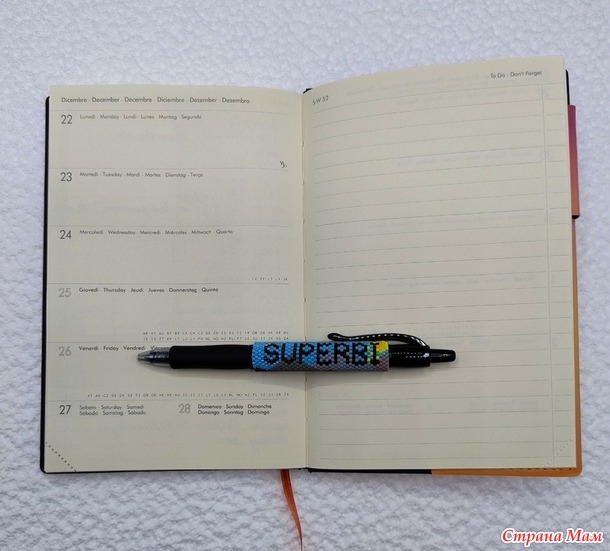 Dicembre · December · Décembre · Diciembre · Dezember · Dezembro
22 Lunedì · Monday · Lundi · Lunes · Montag · Segunda
23 Martedì · Tuesday · Mardi · Martes · Dienstag · Terça
24 Mercoledì · Wednesday · Mercredi · Miércoles · Mittwoch · Quarta
25 Giovedì · Thursday · Jeudi · Jueves · Donnerstag · Quinta
26 Venerdì · Friday · Vendredi
27 Sabato · Saturday · Samedi
Sábado · Samstag · Sábado
28 Domenica · Sunday · Dimanche
Domingo · Sonntag · Domingo
To Do · Don't Forget
SW 52
SUPERBI
Страна Мам